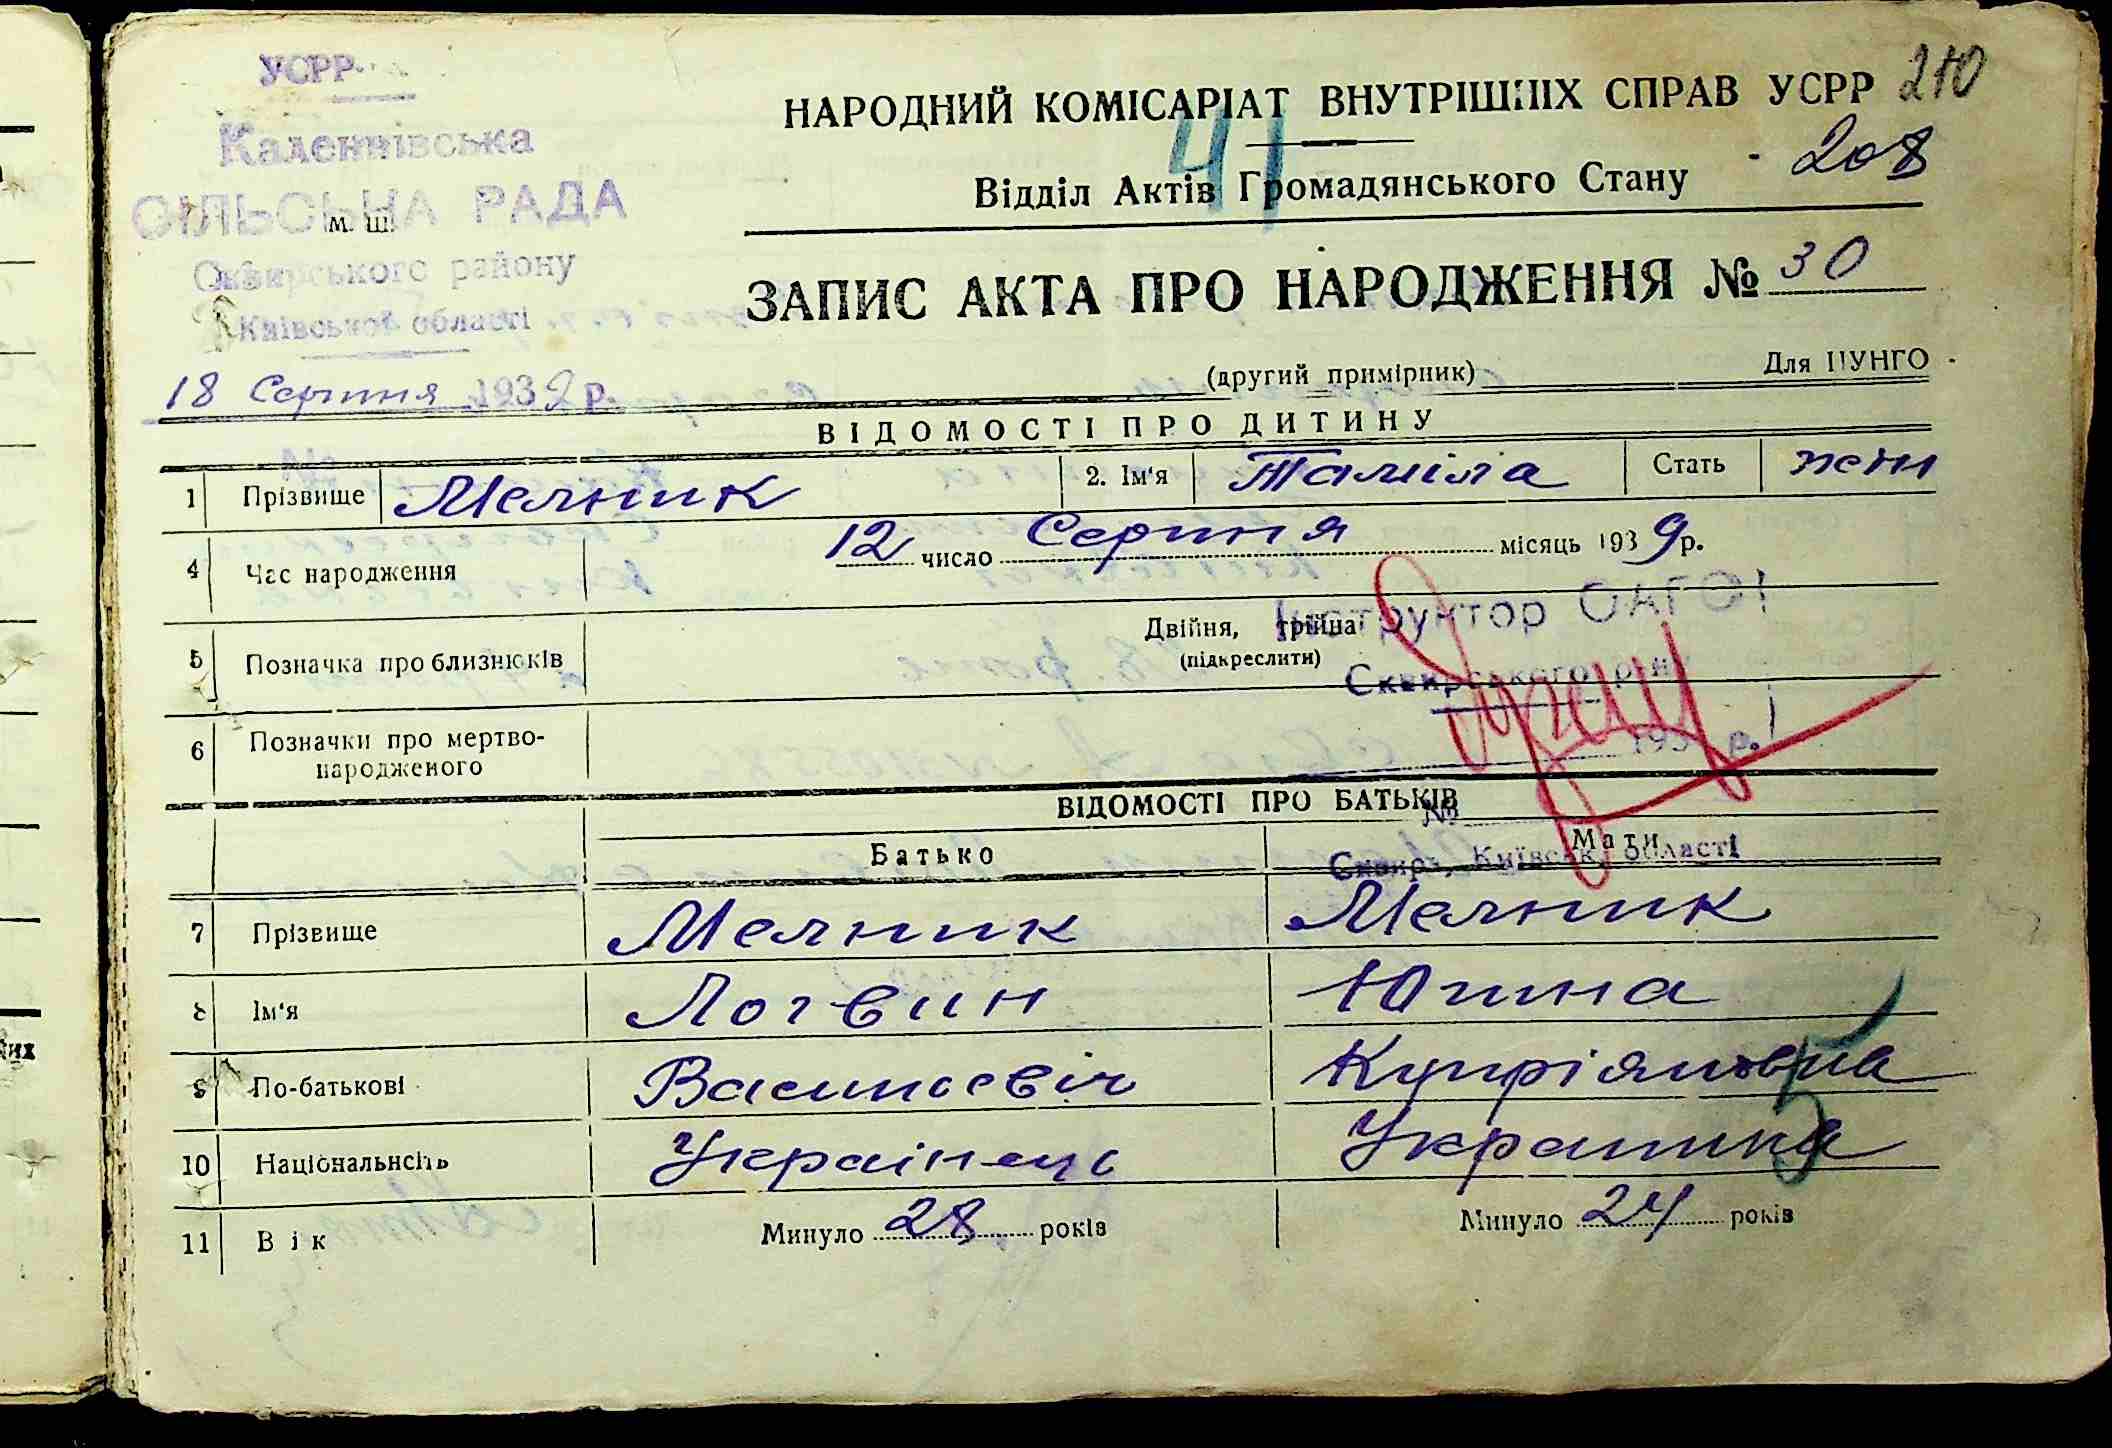 УСРР
НАРОДНИЙ КОМІСАРІАТ ВНУТРІШНІХ СПРАВ УСРР 210
41
208
Каленнівська
СІЛЬСЬКА РАДА
м. ш.
Сквирського району
Київської області
Відділ Актів Громадянського Стану
ЗАПИС АКТА ПРО НАРОДЖЕННЯ № 30
18 Серпня 1939 р.
(другий примірник) Для ЦУНГО
ВІДОМОСТІ ПРО ДИТИНУ
1 Прізвище Мелник 2. Ім'я Таміла Стать жен
4 Час народження 12 число Серпня місяць 1939 р.
Інструктор ОАГС
5 Позначка про близнюків Двійня, трійна
(підкреслити)
Сквирського р-ну
6 Позначки про мертво-
народженого
193 р.
ВІДОМОСТІ ПРО БАТЬКІВ
№
Батько Мати
Сквира, Київськ. області
7 Прізвище Мелник Мелник
8 Ім'я Логвин Югина
9 По-батькові Васильевіч Купріяновна
10 Національність Українець Украинка
5
11 Вік Минуло 28 років Минуло 24 років